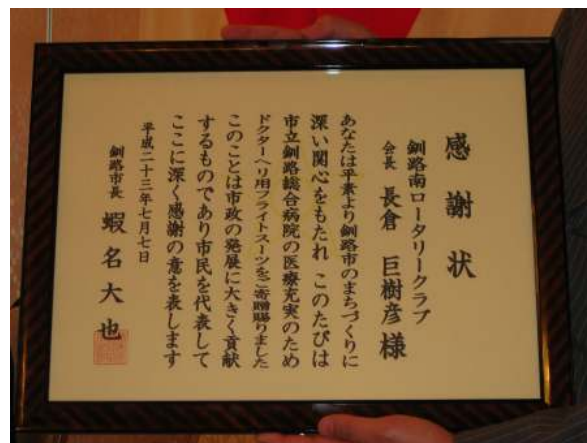 感謝状
釧路南ロータリークラブ
会長 長倉 巨樹彦 様
あなたは平素より釧路市のまちづくりに
深い関心をもたれ このたびは
市立釧路総合病院の医療充実のため
ドクターヘリ用フライトスーツをご寄贈賜りました
このことは市政の発展に大きく貢献
するものであり市民を代表して
ここに深く感謝の意を表します
平成二十三年七月七日
釧路市長 蝦名大也